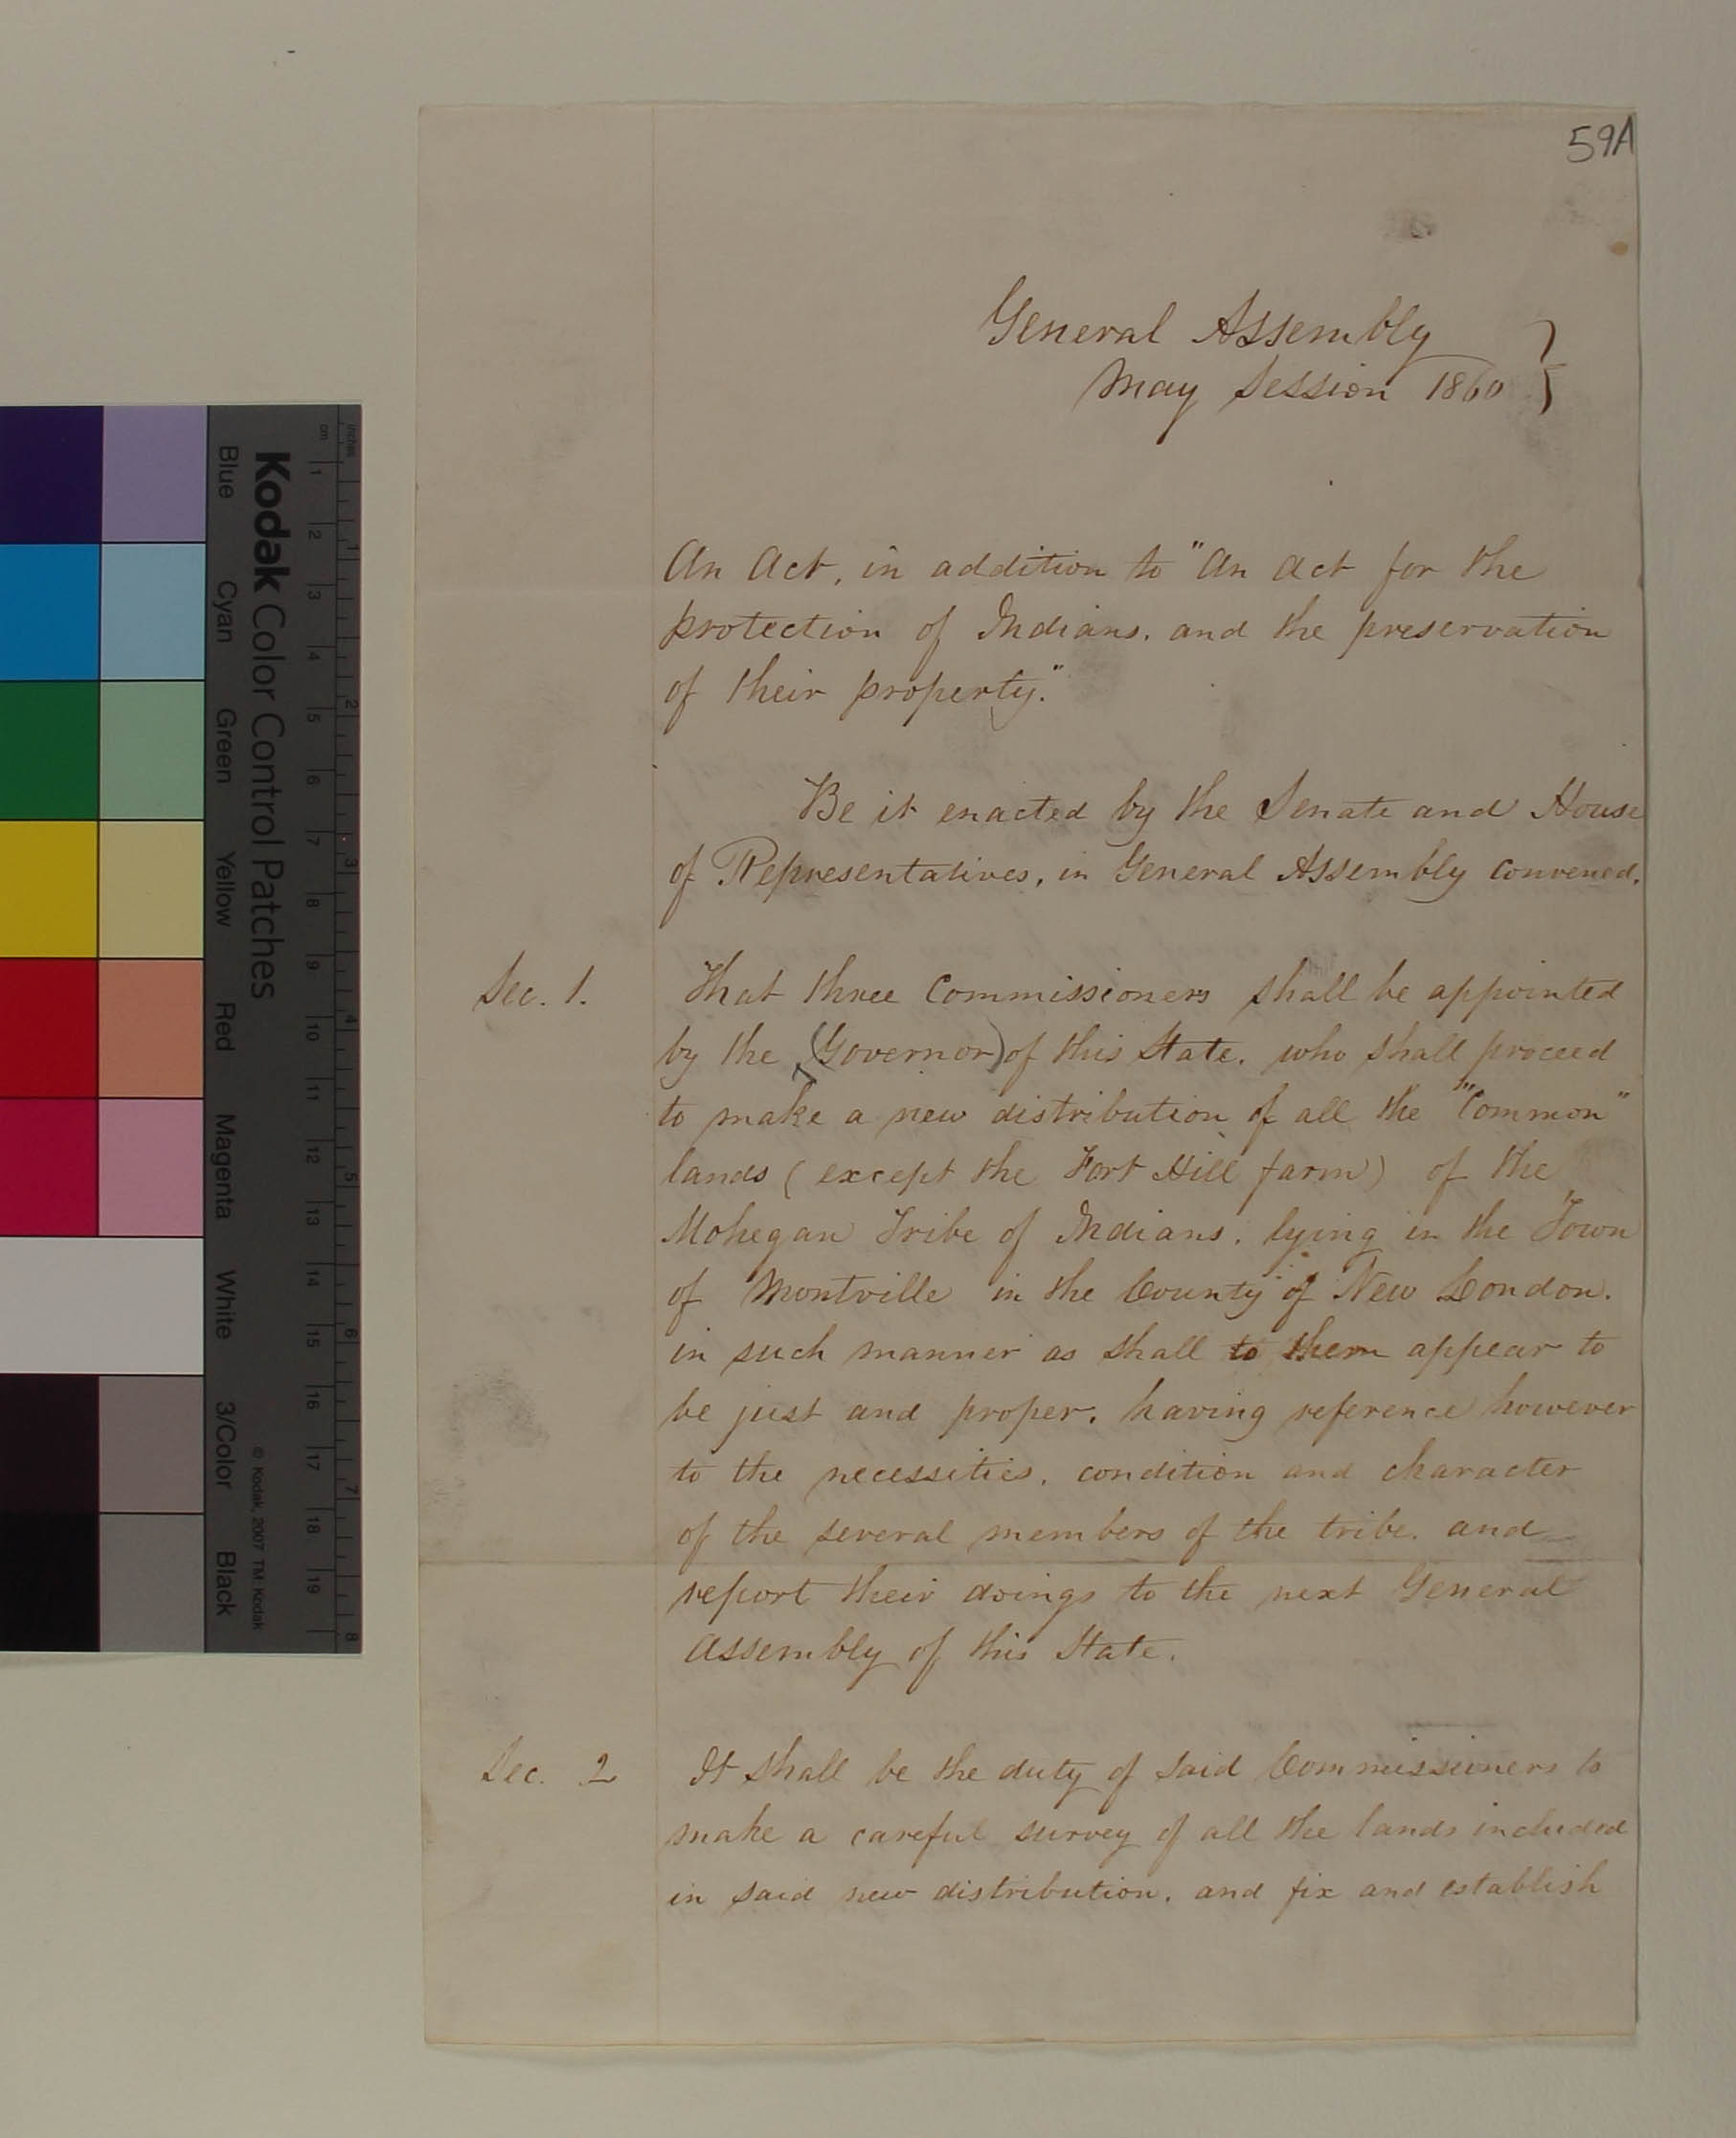 59A
General Assembly
May Session 1860 }
An Act, in addition to "An Act for the
protection of Indians, and the preservation
of their property."
Be it enacted by the Senate and House
of Representatives, in General Assembly convened.
Sec. 1. That three Commissioners shall be appointed
by the (Governor) of this State, who shall proceed
to make a new distribution of all the "Common"
lands (except the Fort Hill farm) of the
Mohegan Tribe of Indians, lying in the Town
of Montville in the County of New London.
in such manner as shall to them appear to
be just and proper, having reference however
to the necessities, condition and character
of the several members of the tribe, and
report their doings to the next General
Assembly of this State.
Sec. 2 It shall be the duty of said Commissioners to
make a careful survey of all the lands included
in said new distribution, and fix and establish
Kodak Color Control Patches
Blue Cyan Green Yellow Red Magenta White 3/Color Black
© Kodak, 2007 TM: Kodak
cm 1 2 3 4 5 6 7 8 9 10 11 12 13 14 15 16 17 18 19
inches 1 2 3 4 5 6 7 8